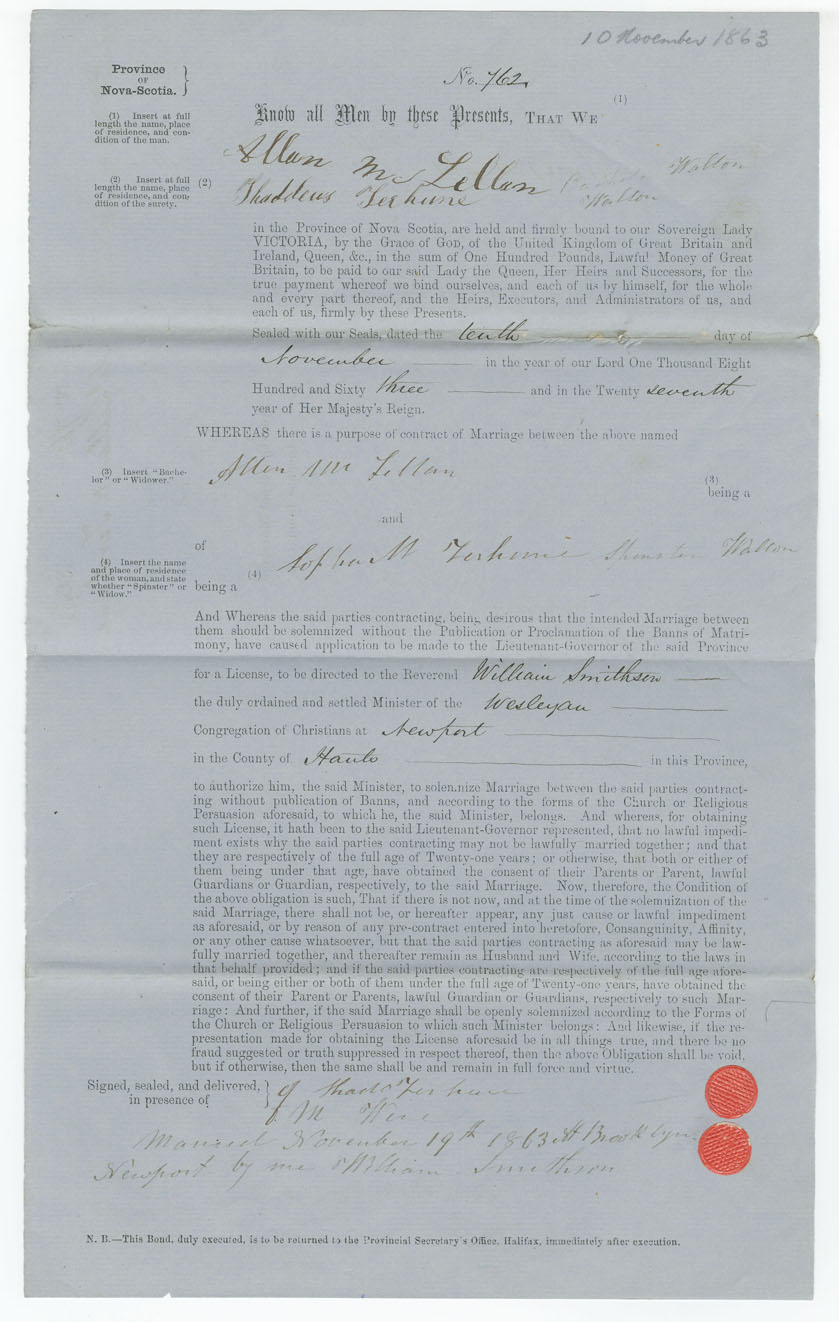 10 November 1863
Province
OF
Nova-Scotia.
No. 762
(1) Insert at full
length the name, place
of residence, and con-
dition of the man.
Know all Men by these Presents, THAT WE (1)
Allan Mc Lellan Walton
(2) Insert at full
length the name, place
of residence, and con-
dition of the surety.
(2) Thaddeus Terhune Walton
in the Province of Nova Scotia, are held and firmly bound to our Sovereign Lady
VICTORIA, by the Grace of GOD, of the United Kingdom of Great Britain and
Ireland, Queen, &c., in the sum of One Hundred Pounds, Lawful Money of Great
Britain, to be paid to our said Lady the Queen, Her Heirs and Successors, for the
true payment whereof we bind ourselves, and each of us by himself, for the whole
and every part thereof, and the Heirs, Executors, and Administrators of us, and
each of us, firmly by these Presents.
Sealed with our Seals, dated the tenth day of
November in the year of our Lord One Thousand Eight
Hundred and Sixty three and in the Twenty seventh
year of Her Majesty's Reign.
WHEREAS there is a purpose of contract of Marriage between the above named
(3) Insert "Bache-
lor" or "Widower."
Allen Mc Lellan
(3)
being a
and
of
(4) Insert the name
and place of residence
of the woman, and state
whether "Spinster" or
"Widow."
Sophia M Terhune Spinster Walton
(4)
being a
And Whereas the said parties contracting, being desirous that the intended Marriage between
them should be solemnized without the Publication or Proclamation of the Banns of Matri-
mony, have caused application to be made to the Lieutenant-Governor of the said Province
for a License, to be directed to the Reverend William Smithson
the duly ordained and settled Minister of the Wesleyan
Congregation of Christians at Newport
in the County of Hants in this Province,
to authorize him, the said Minister, to solemnize Marriage between the said parties contract-
ing without publication of Banns, and according to the forms of the Church or Religious
Persuasion aforesaid, to which he, the said Minister, belongs. And whereas, for obtaining
such License, it hath been to the said Lieutenant-Governor represented, that no lawful impedi-
ment exists why the said parties contracting may not be lawfully married together; and that
they are respectively of the full age of Twenty-one years; or otherwise, that both or either of
them being under that age, have obtained the consent of their Parents or Parent, lawful
Guardians or Guardian, respectively, to the said Marriage. Now, therefore, the Condition of
the above obligation is such, That if there is not now, and at the time of the solemnization of the
said Marriage, there shall not be, or hereafter appear, any just cause or lawful impediment
as aforesaid, or by reason of any pre-contract entered into heretofore, Consanguinity, Affinity,
or any other cause whatsoever, but that the said parties contracting as aforesaid may be law-
fully married together, and thereafter remain as Husband and Wife, according to the laws in
that behalf provided; and if the said parties contracting are respectively of the full age afore-
said, or being either or both of them under the full age of Twenty-one years, have obtained the
consent of their Parent or Parents, lawful Guardian or Guardians, respectively to such Mar-
riage: And further, if the said Marriage shall be openly solemnized according to the Forms of
the Church or Religious Persuasion to which such Minister belongs: And likewise, if the re-
presentation made for obtaining the License aforesaid be in all things true, and there be no
fraud suggested or truth suppressed in respect thereof, then the above Obligation shall be void,
but if otherwise, then the same shall be and remain in full force and virtue.
Signed, sealed, and delivered,
in presence of
of Thads Terhune
M Weir
Married November 19th 1863 At Brooklyn
Newport by me William Smithson
N. B.—This Bond, duly executed, is to be returned to the Provincial Secretary's Office, Halifax, immediately after execution.